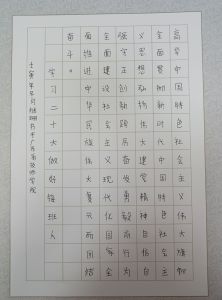 高举中国特色社会主义伟大旗帜
全面贯彻新时代中国特色社会主义
义思想弘扬伟大建党精神自信自
强守正创新踔厉奋发勇毅前行为
全面建设社会主义现代化国家全
面推进中华民族伟大复兴而团结
奋斗
学习二十大做好接班人
壬寅年冬月 书于广东 技师学院